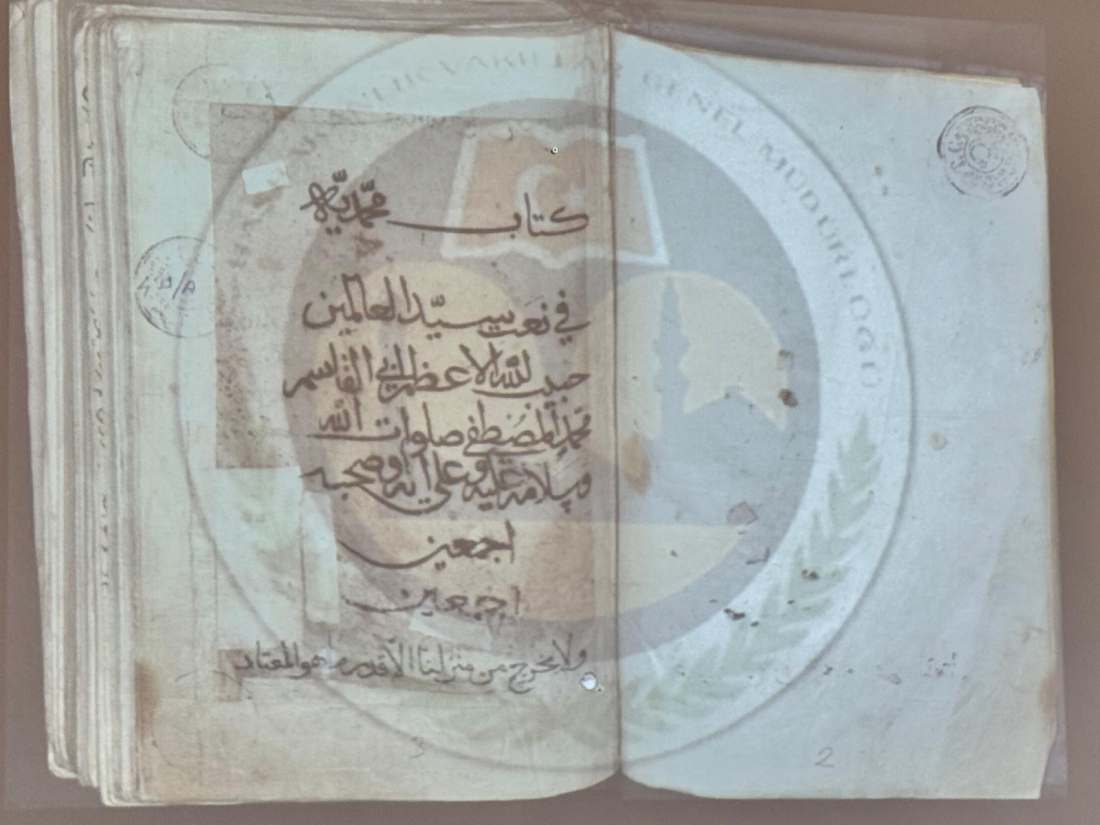 كتاب محمّديّه
في نعت سيّد العالمين
حبيب الله الاعظم ابي القاسم
محمد المصطفى صلوات الله
وسلامه عليه وعلى آله وصحبه
اجمعين
اجمعين
ولا يخرج من منزلنا الا قدر ما هو المعتاد
VAKIFLAR GENEL MÜDÜRLÜĞÜ
3
2